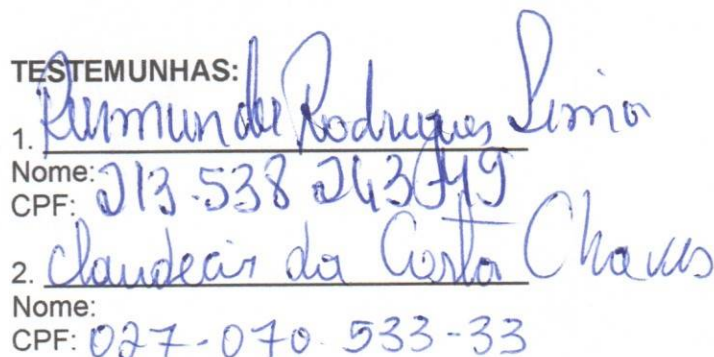 TESTEMUNHAS:
1. Raimunda Rodrigues Lima
Nome:
CPF: 213.538 243 49
2. Claudecir da Costa Chaves
Nome:
CPF: 027-070.533-33